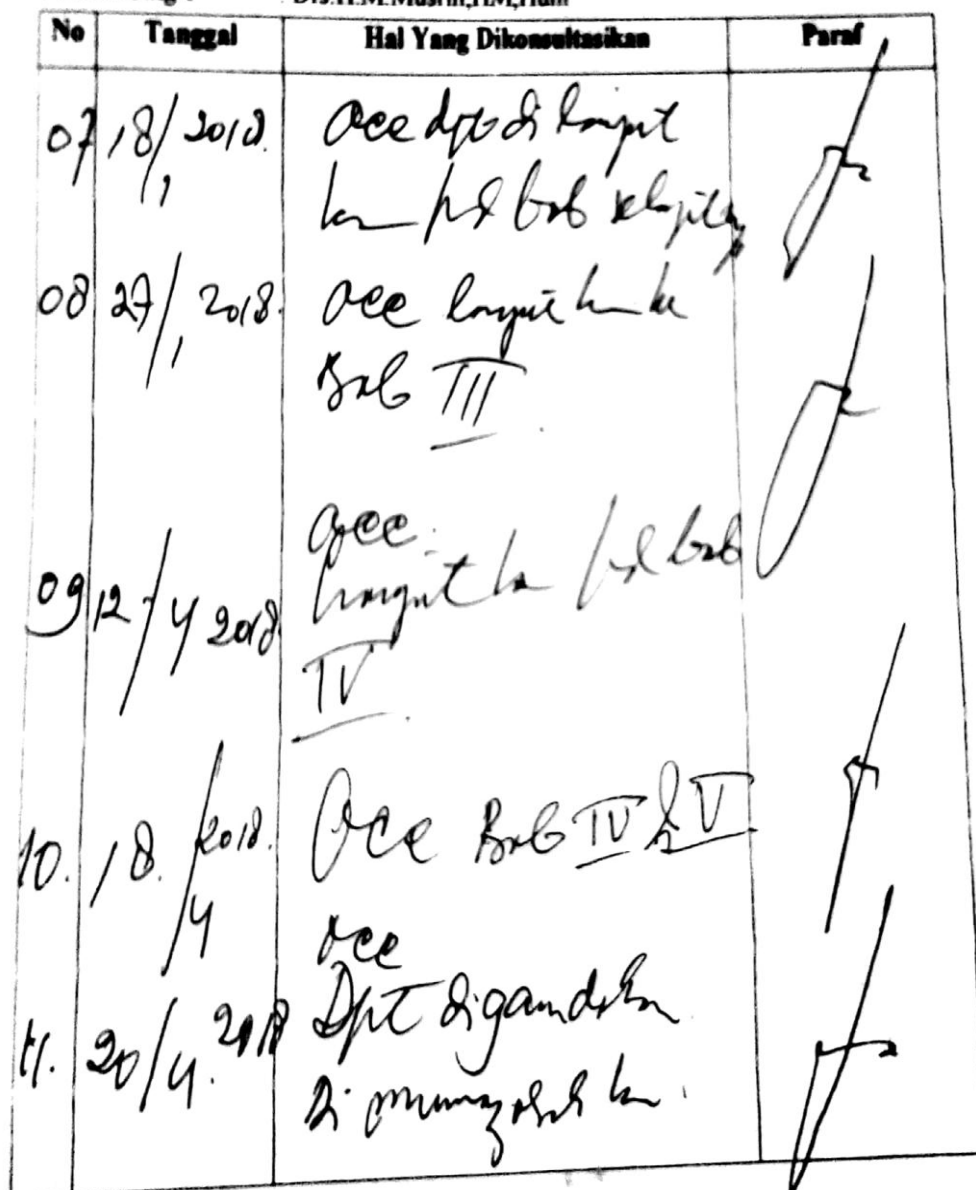 Drs.H.M.Musrin,HM,Hum
No Tanggal Hal Yang Dikonsultasikan Paraf
07 18/1 2018. acc dpt di lanjut
kan pd bab
08 27/1 2018. acc lanjut kan ke
Bab III
acc.
09 12/4 2018 lanjut kan pd bab
IV
10. 18/4 2018. Acc Bab IV & V
acc
11. 20/4. 2018 Dpt digandakan
Di munaqosah kan.